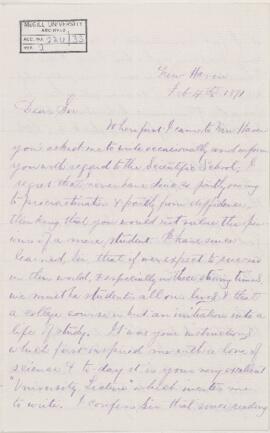 McGILL UNIVERSITY
ARCHIVES
ACC. NO.
REF. 2
New Haven
Feb 4th 1871
Dear Sir
When first I came to New Haven
you asked me to write occasionally and inform
you with regard to the Scientific School. I
regret that I never have done so partly owing
to procrastination & partly from diffidence,
thinking that you would not value the
of a mere student. I have since
learned, Sir that if we expect to succeed
in this world, & especially in these stirring times,
we must be students all our lives & that
a college course is but an initiation into a
life of study. It was your instructions
which first inspired me with a love of
science & to-day it is your very excellent
"University Lecture" which incites me
to write. I confess Sir that since reading